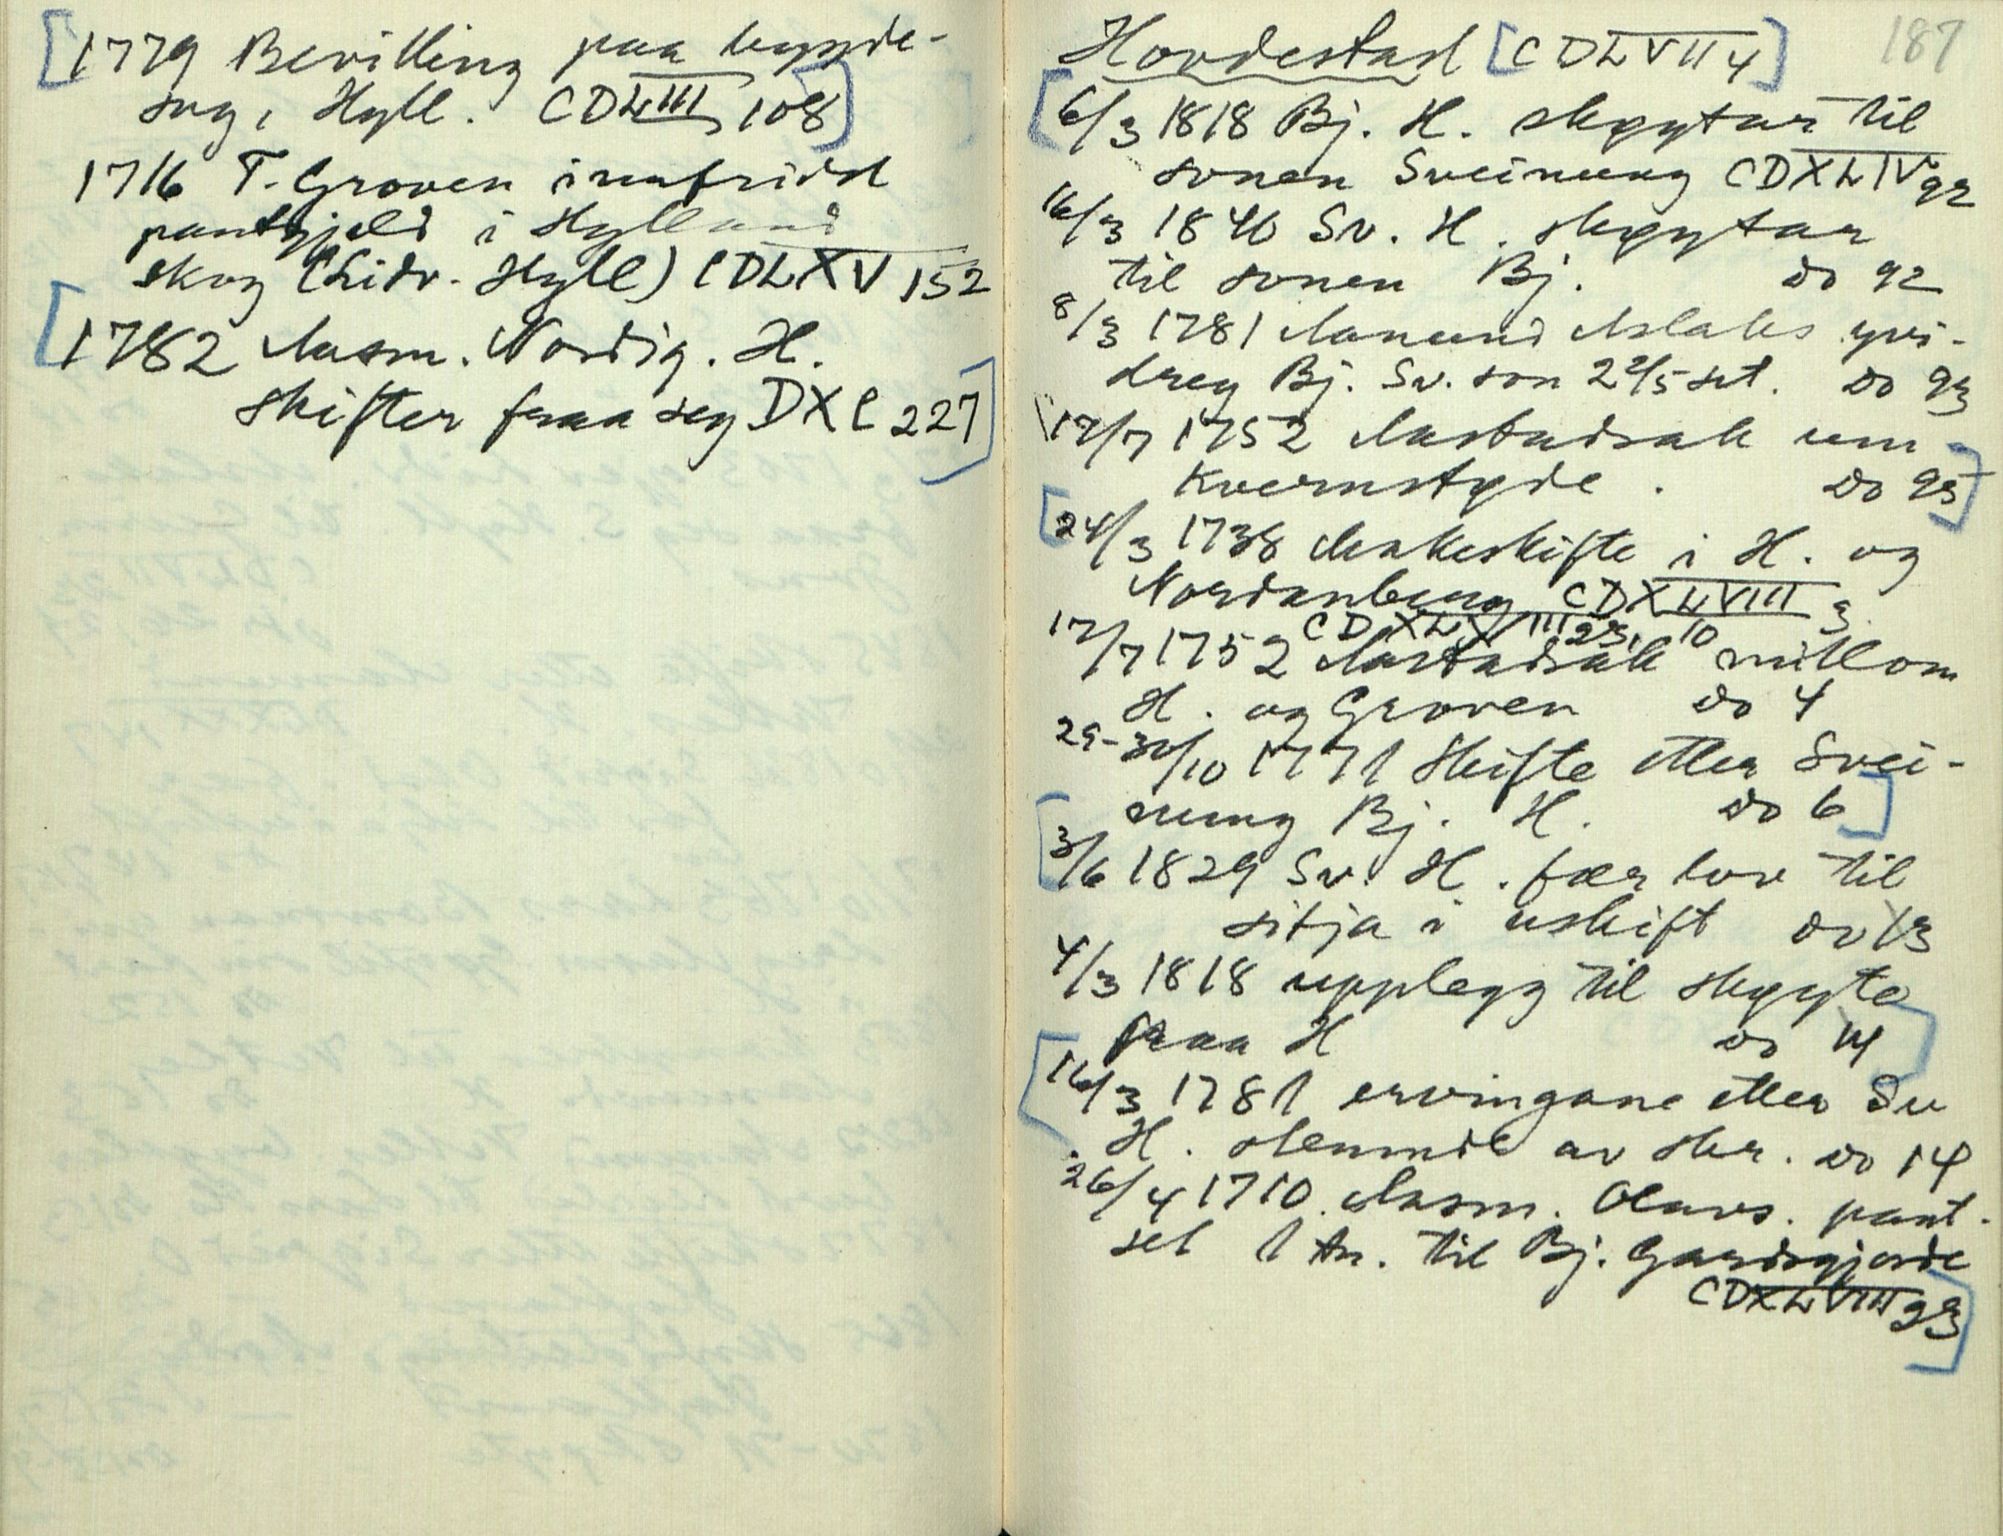 [1779 Bevilling paa bygde-
sag, Hyll. CDLIII 108]
1716 T. Groven innfridd
pantgjeld i Hylland
skog (Lidv. Hyll) CDLXV 152
[1782 Aasm. Nordig. H.
skifter fraa seg DXC 227]
187
Hovdestad [CDLVII 4]
[6/3 1818 Bj. H. skøytar til
sonen Sveinung CDXLIV 92
16/3 1840 Sv. H. skøytar
til sonen Bj. do 92
8/3 1781 Aanund Aslaks yvi-
dreg Bj. Sv. son 2 2/5 set. do 93
17/7 1752 Aastadsak um
kvernstøde. do 95]
[24/3 1738 Makeskifte i H. og
Nordanberg CDXLVIII 3
CDXLVIII 23, 10
17/7 1752 Aastadsak millom
H. og Groven do 4
29-30/10 1771 Skifte etter Svei-
nung Bj. H. do 6]
[3/6 1829 Sv. H. fær lov til
sitja i uskift do 13
4/3 1818 upplegg til skøyte
fraa H do 14]
[16/3 1781 ervingane etter Sv
H. stemnde av skr. do 14
26/4 1710. Aasm. Olavs. pant-
set 1 tn. til Bj. Gardsgjorde
CDXLVIII 93]